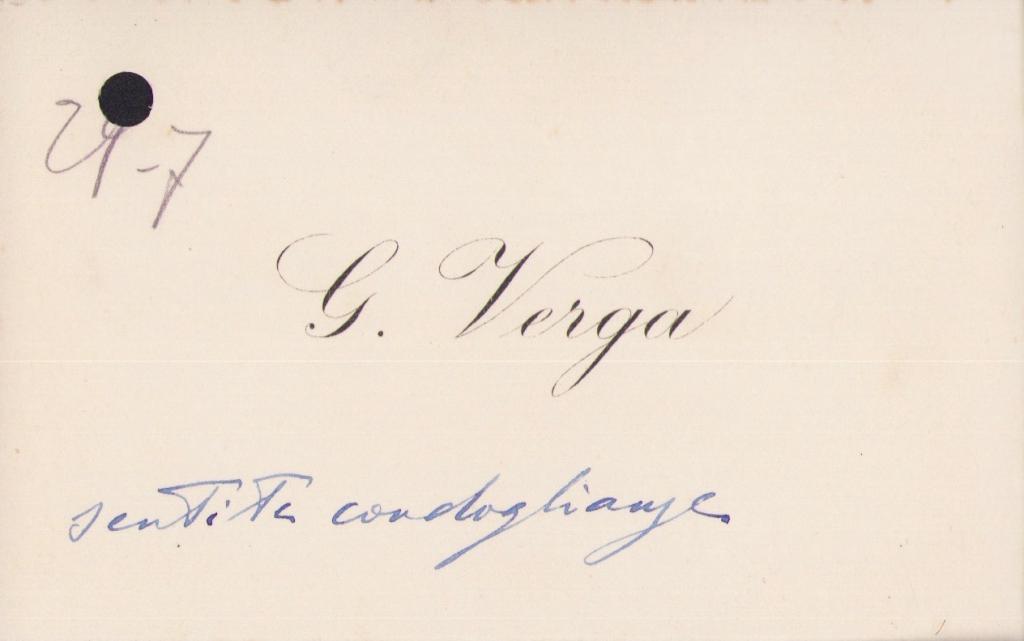 29-7
G. Verga
sentite condoglianze